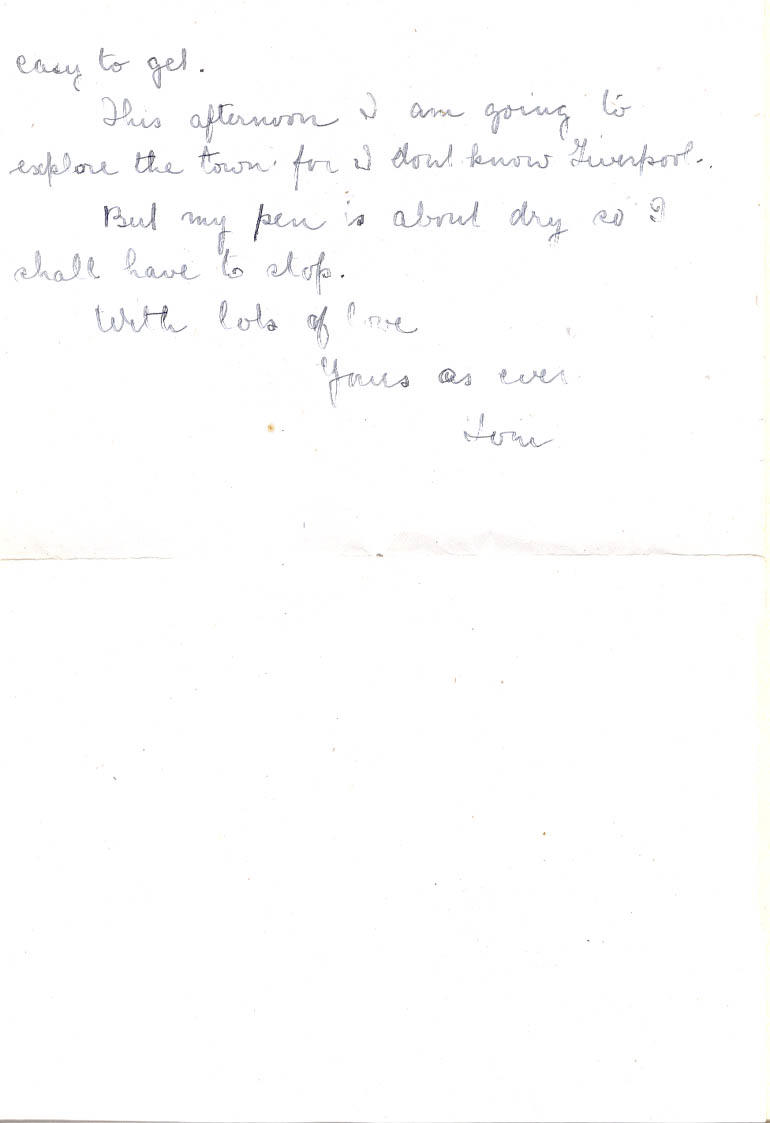 easy to get.
This afternoon I am going to
explore the town for I dont know Liverpool.
But my pen is about dry so I
shall have to stop.
With lots of love
Yours as ever